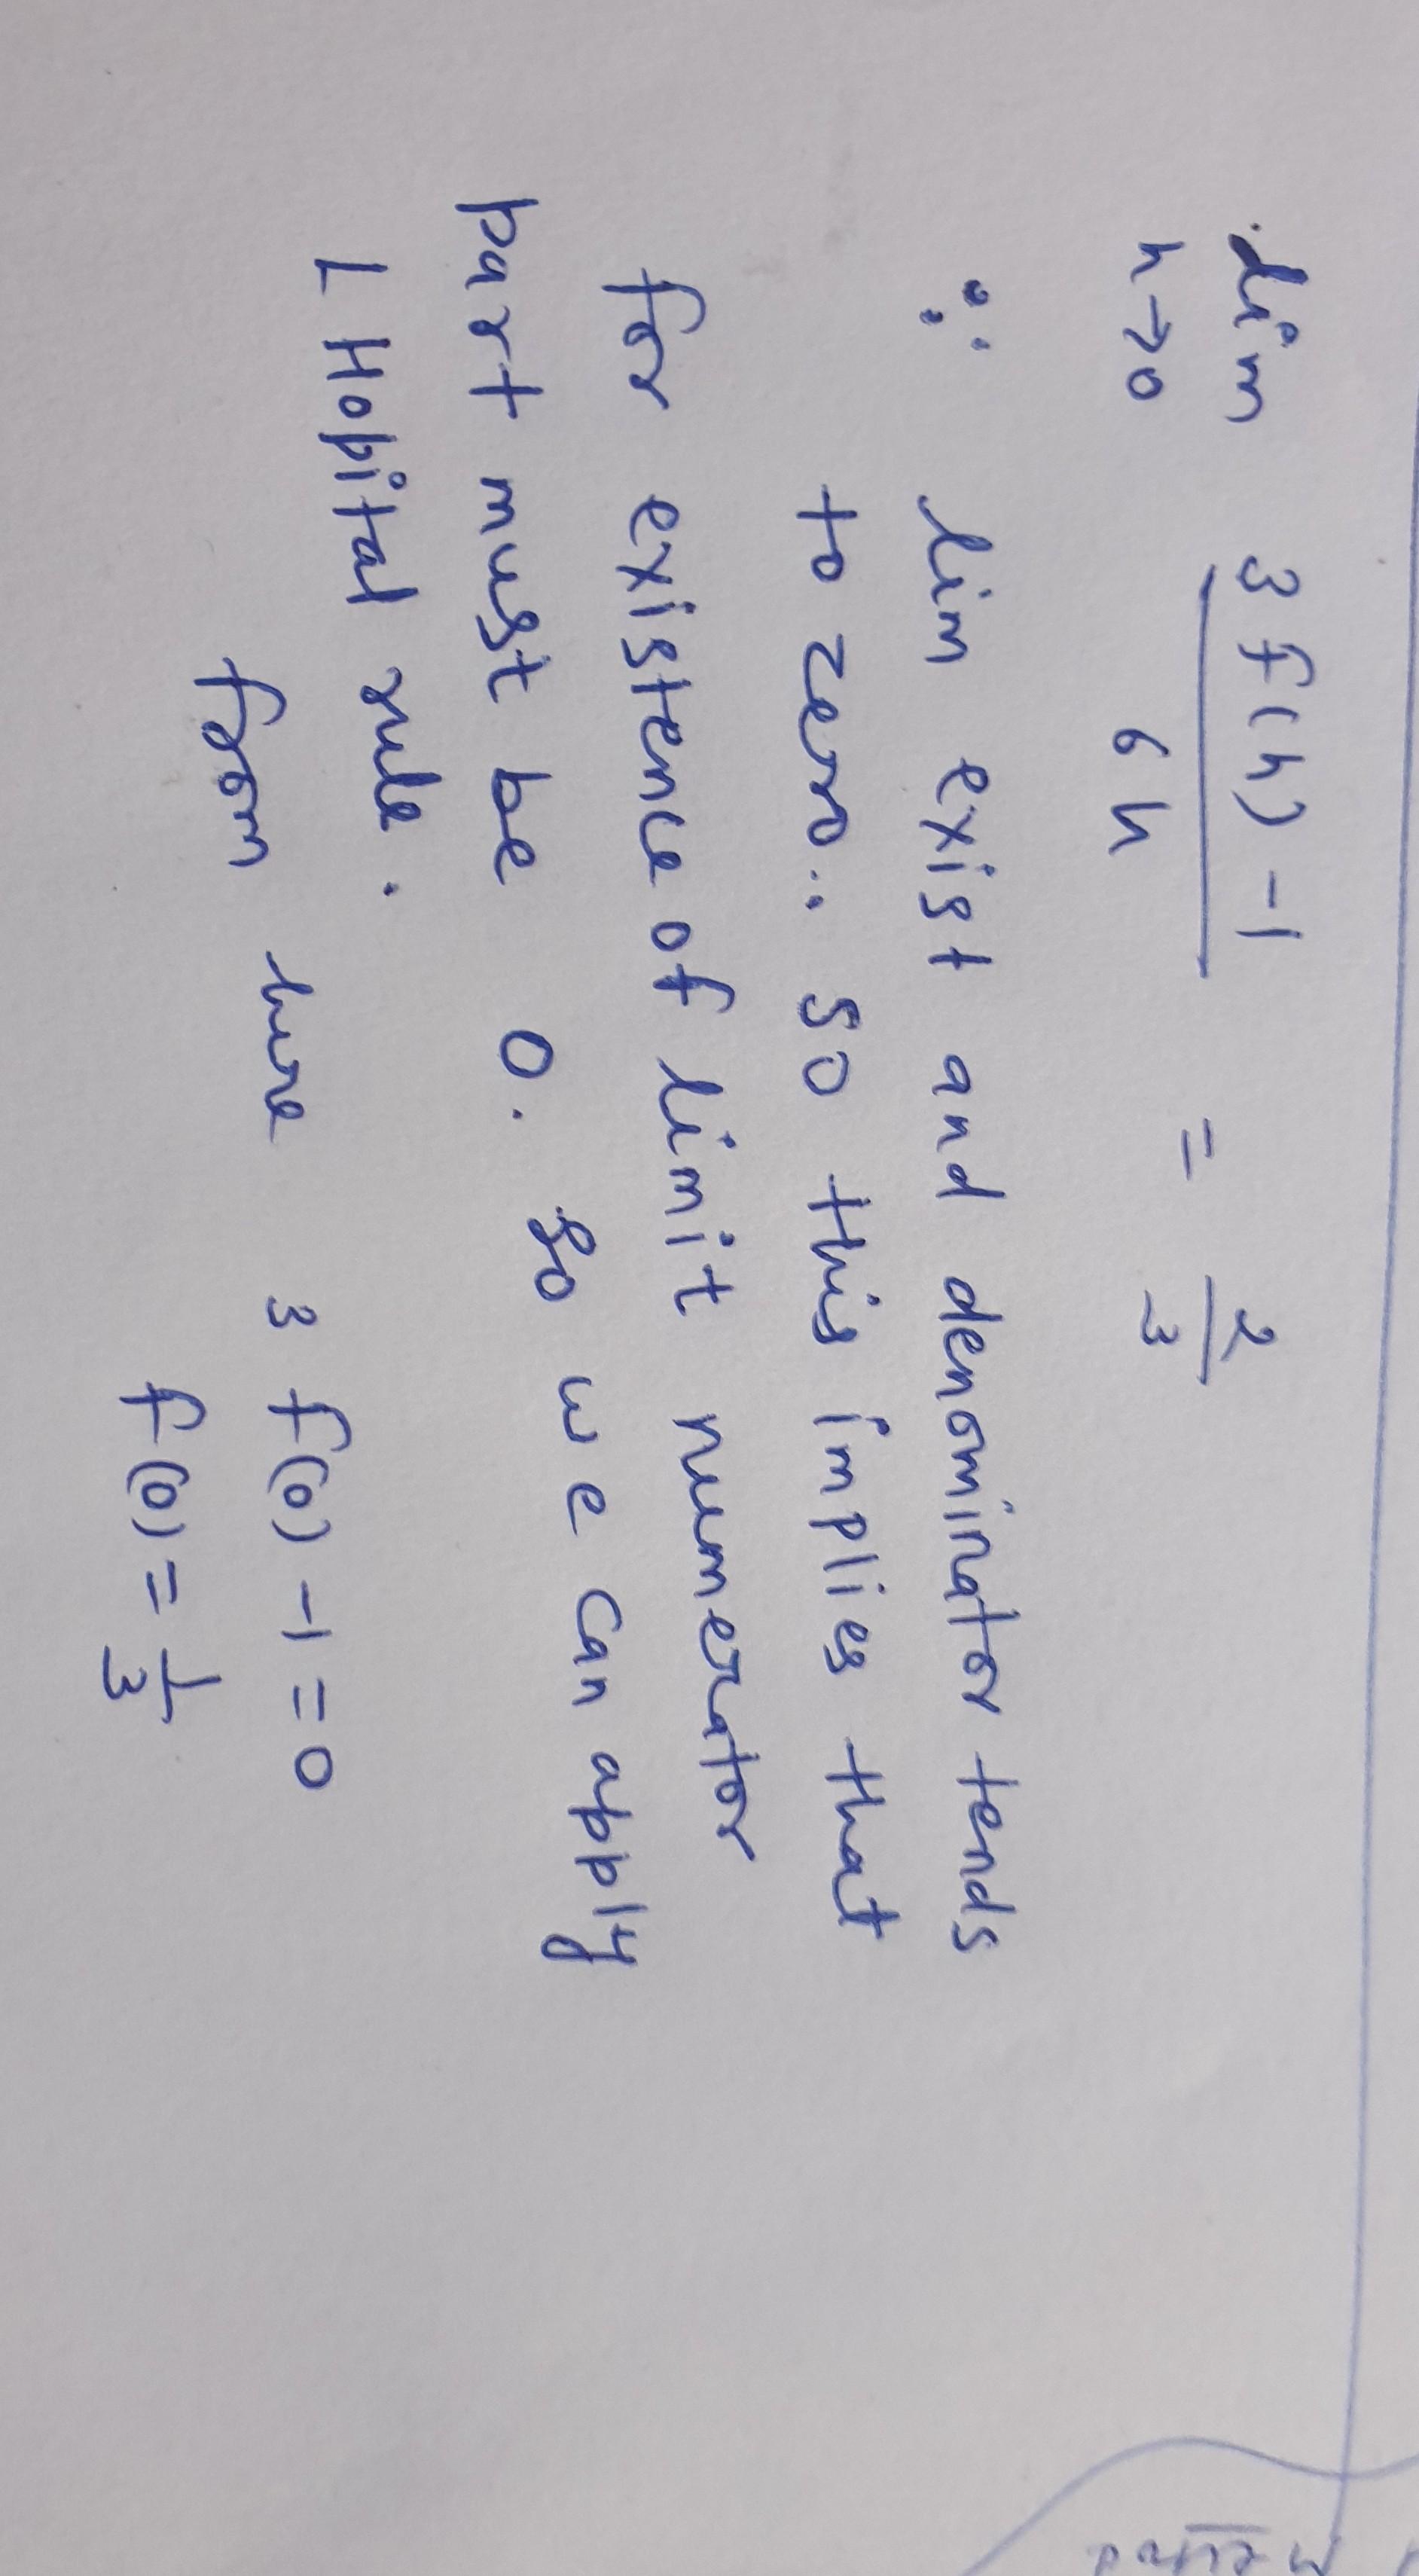 lim 3 f(h) -1 = 2
h→0 6h 3
∵ lim exist and denominator tends
to zero.. so this implies that
for existence of limit numerator
part must be 0. So we can apply
L Hopital rule.
from here 3 f(0) -1 = 0
f(0) = 1/3